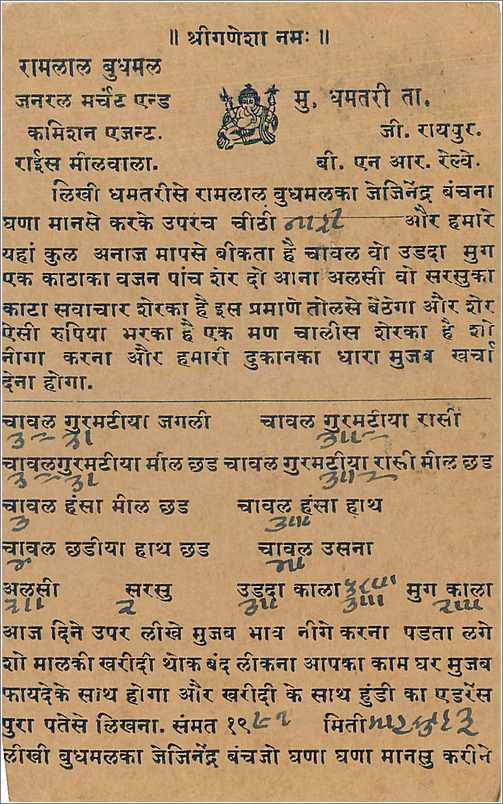 ॥ श्रीगणेशा नमः ॥
रामलाल बुधमल
जनरल मर्चंट एन्ड
मु. धमतरी ता.
कमिशन एजन्ट.
जी. रायपुर.
राईस मीलवाला.
बी. एन आर. रेल्वे.
लिखी धमतरीसे रामलाल बुधमलका जेजिनेंद्र बंचना
घणा मानसे करके उपरंच चीठी और हमारे
यहां कुल अनाज मापसे बीकता है चावल वो उडदा मुग
एक काठाका वजन पांच शेर दो आना अलसी वो सरसुका
काटा सवाचार शेरका है इस प्रमाणे तोलसे बेठेगा और शेर
ऐसी रुपिया भरका है एक मण चालीस शेरका है शो
नीगा करना और हमारी दुकानका धारा मुजब खर्चा
देना होगा.
चावल गुरमटीया जगली चावल गुरमटीया रासी
चावलगुरमटीया मील छड चावल गुरमटीया रासी मील छड
चावल हंसा मील छड चावल हंसा हाथ
चावल छडीया हाथ छड चावल उसना
अलसी सरसु उडदा काला मुग काला
आज दिने उपर लीखे मुजब भाव नीगे करना पडता लगे
शो मालकी खरीदी थोक बंद लीकना आपका काम घर मुजब
फायदेके साथ होगा और खरीदी के साथ हुंडी का एडरेंस
पुरा पतेसे लिखना. संमत १९ मिती
लीखी बुधमलका जेजिनेंद्र बंचजो घणा घणा मानसु करीने